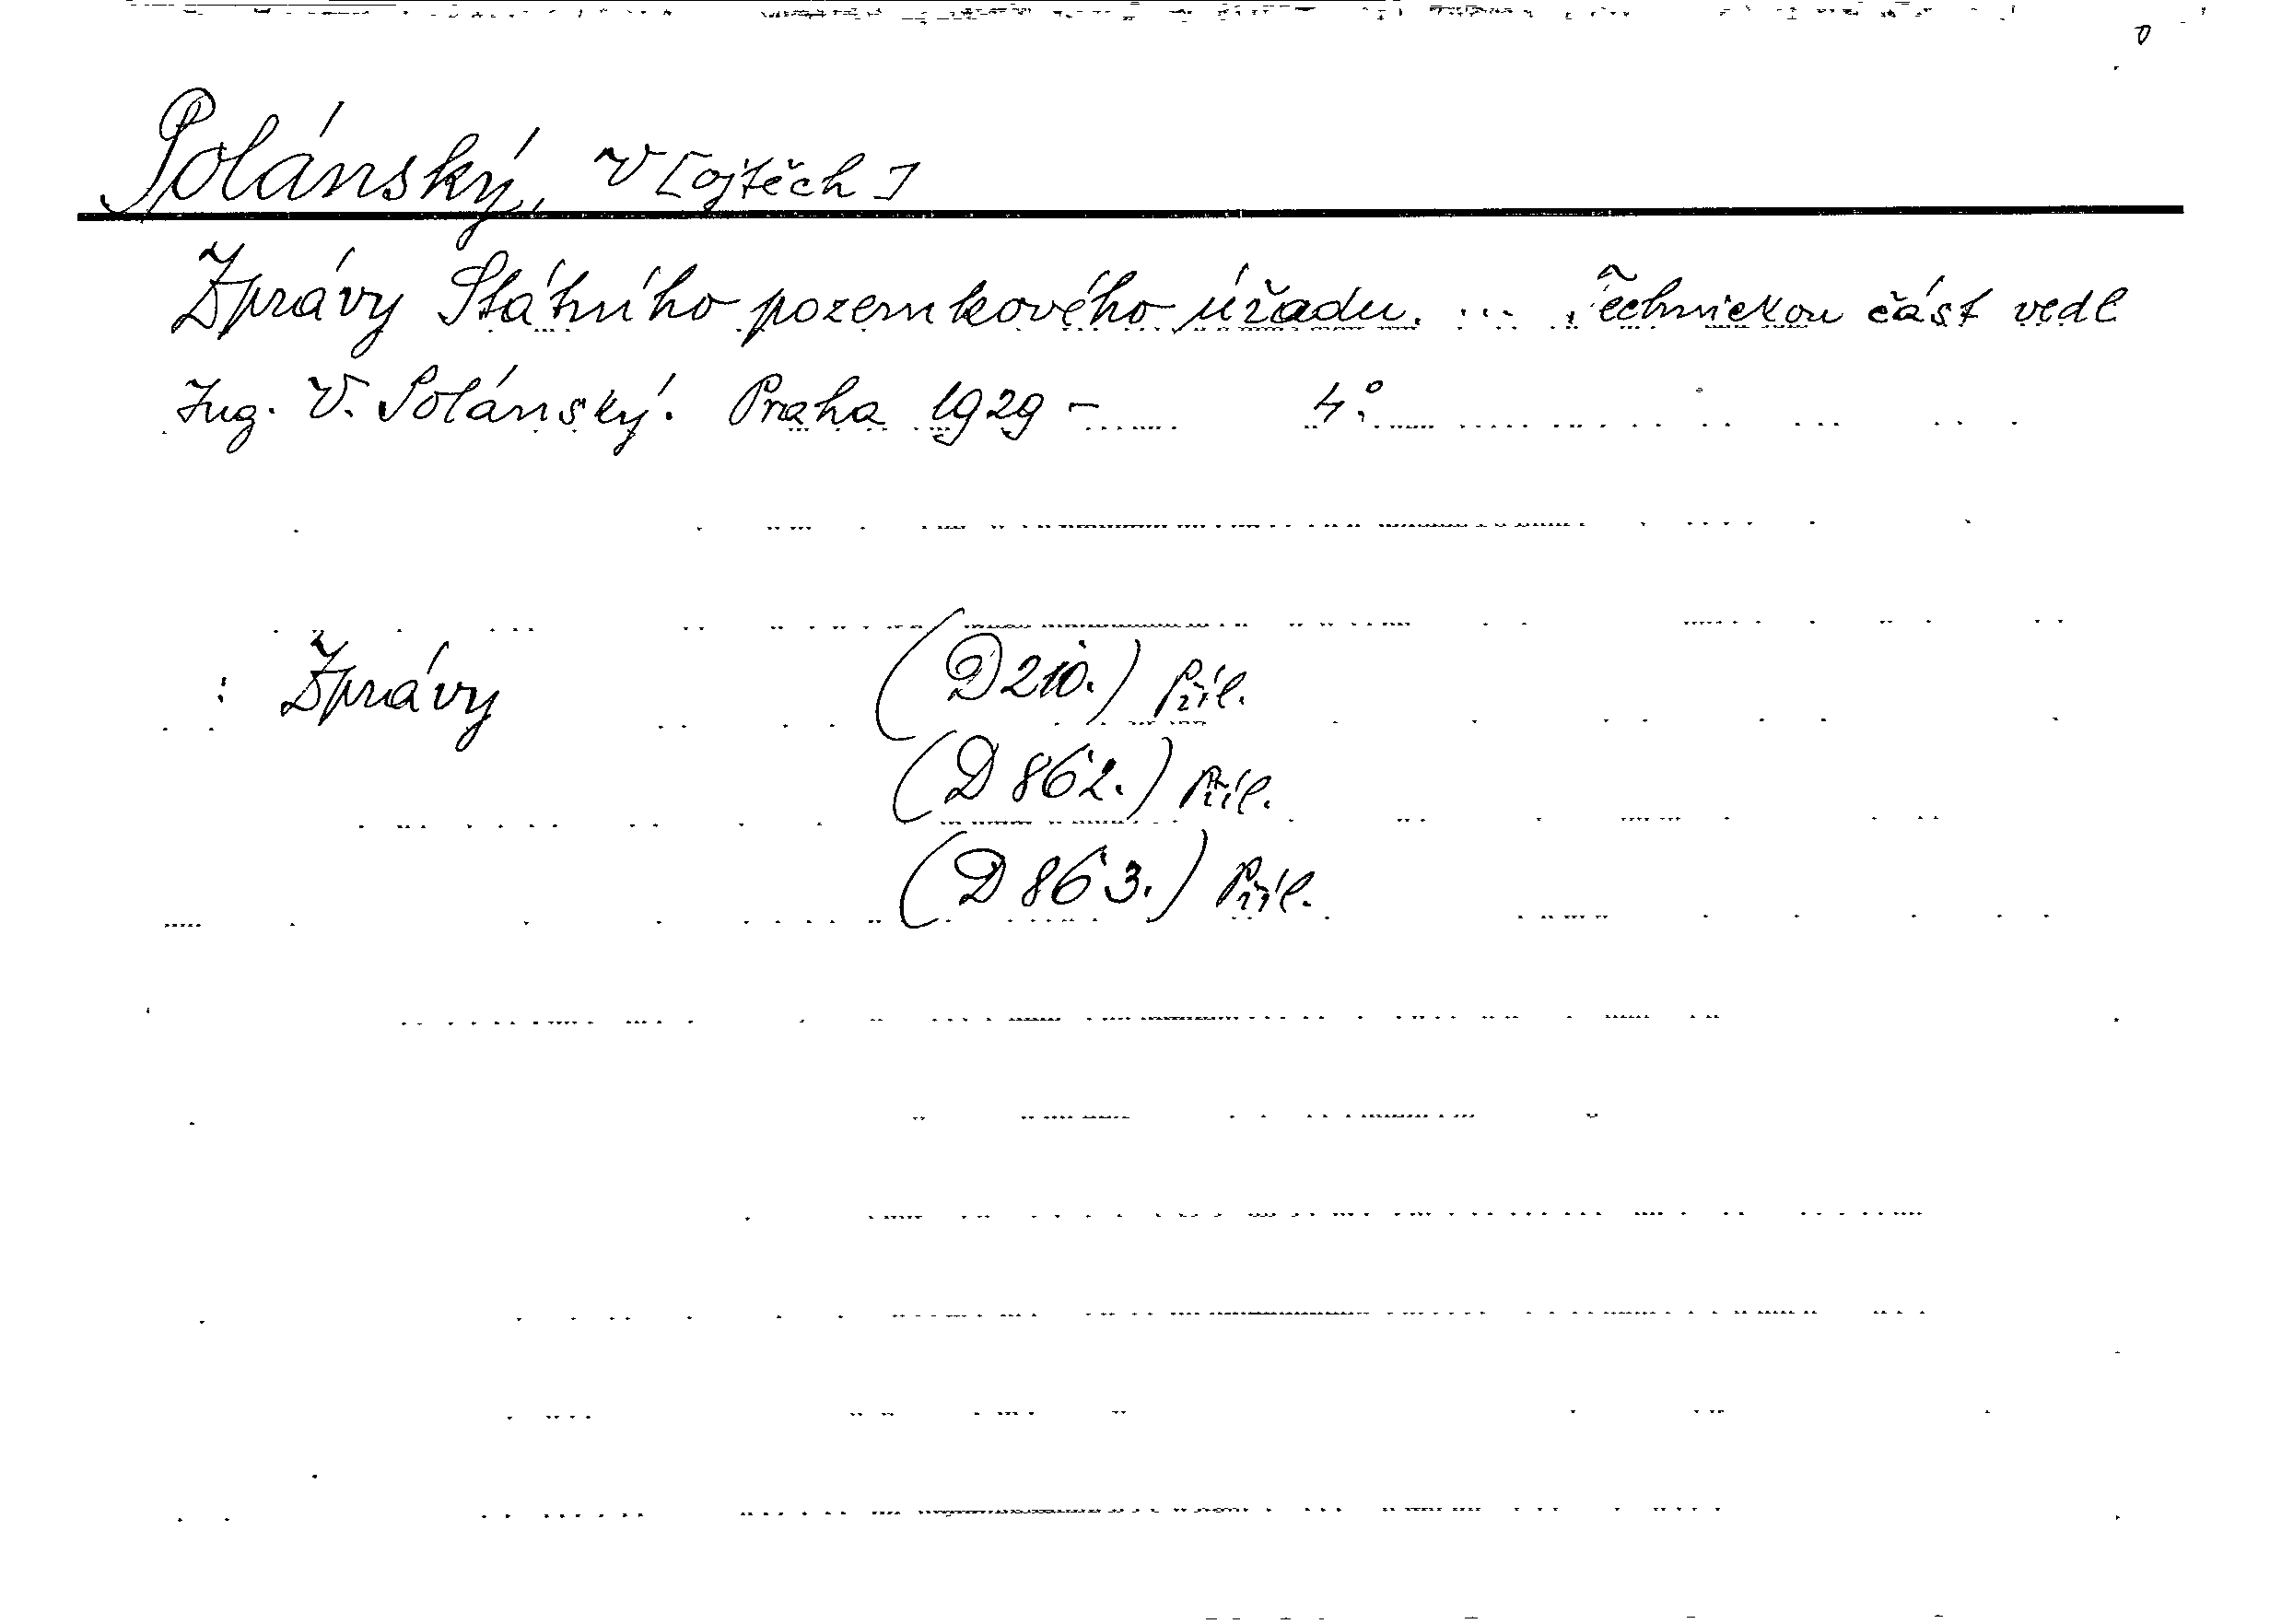 Polánský, V[ojtěch]
Zprávy Státního pozemkového úřadu. ... Technickou část vedl
Ing. V. Polánský. Praha 1929 - 4°.
: Zprávy (D 210.) Příl.
(D 862.) Příl.
(D 863.) Příl.